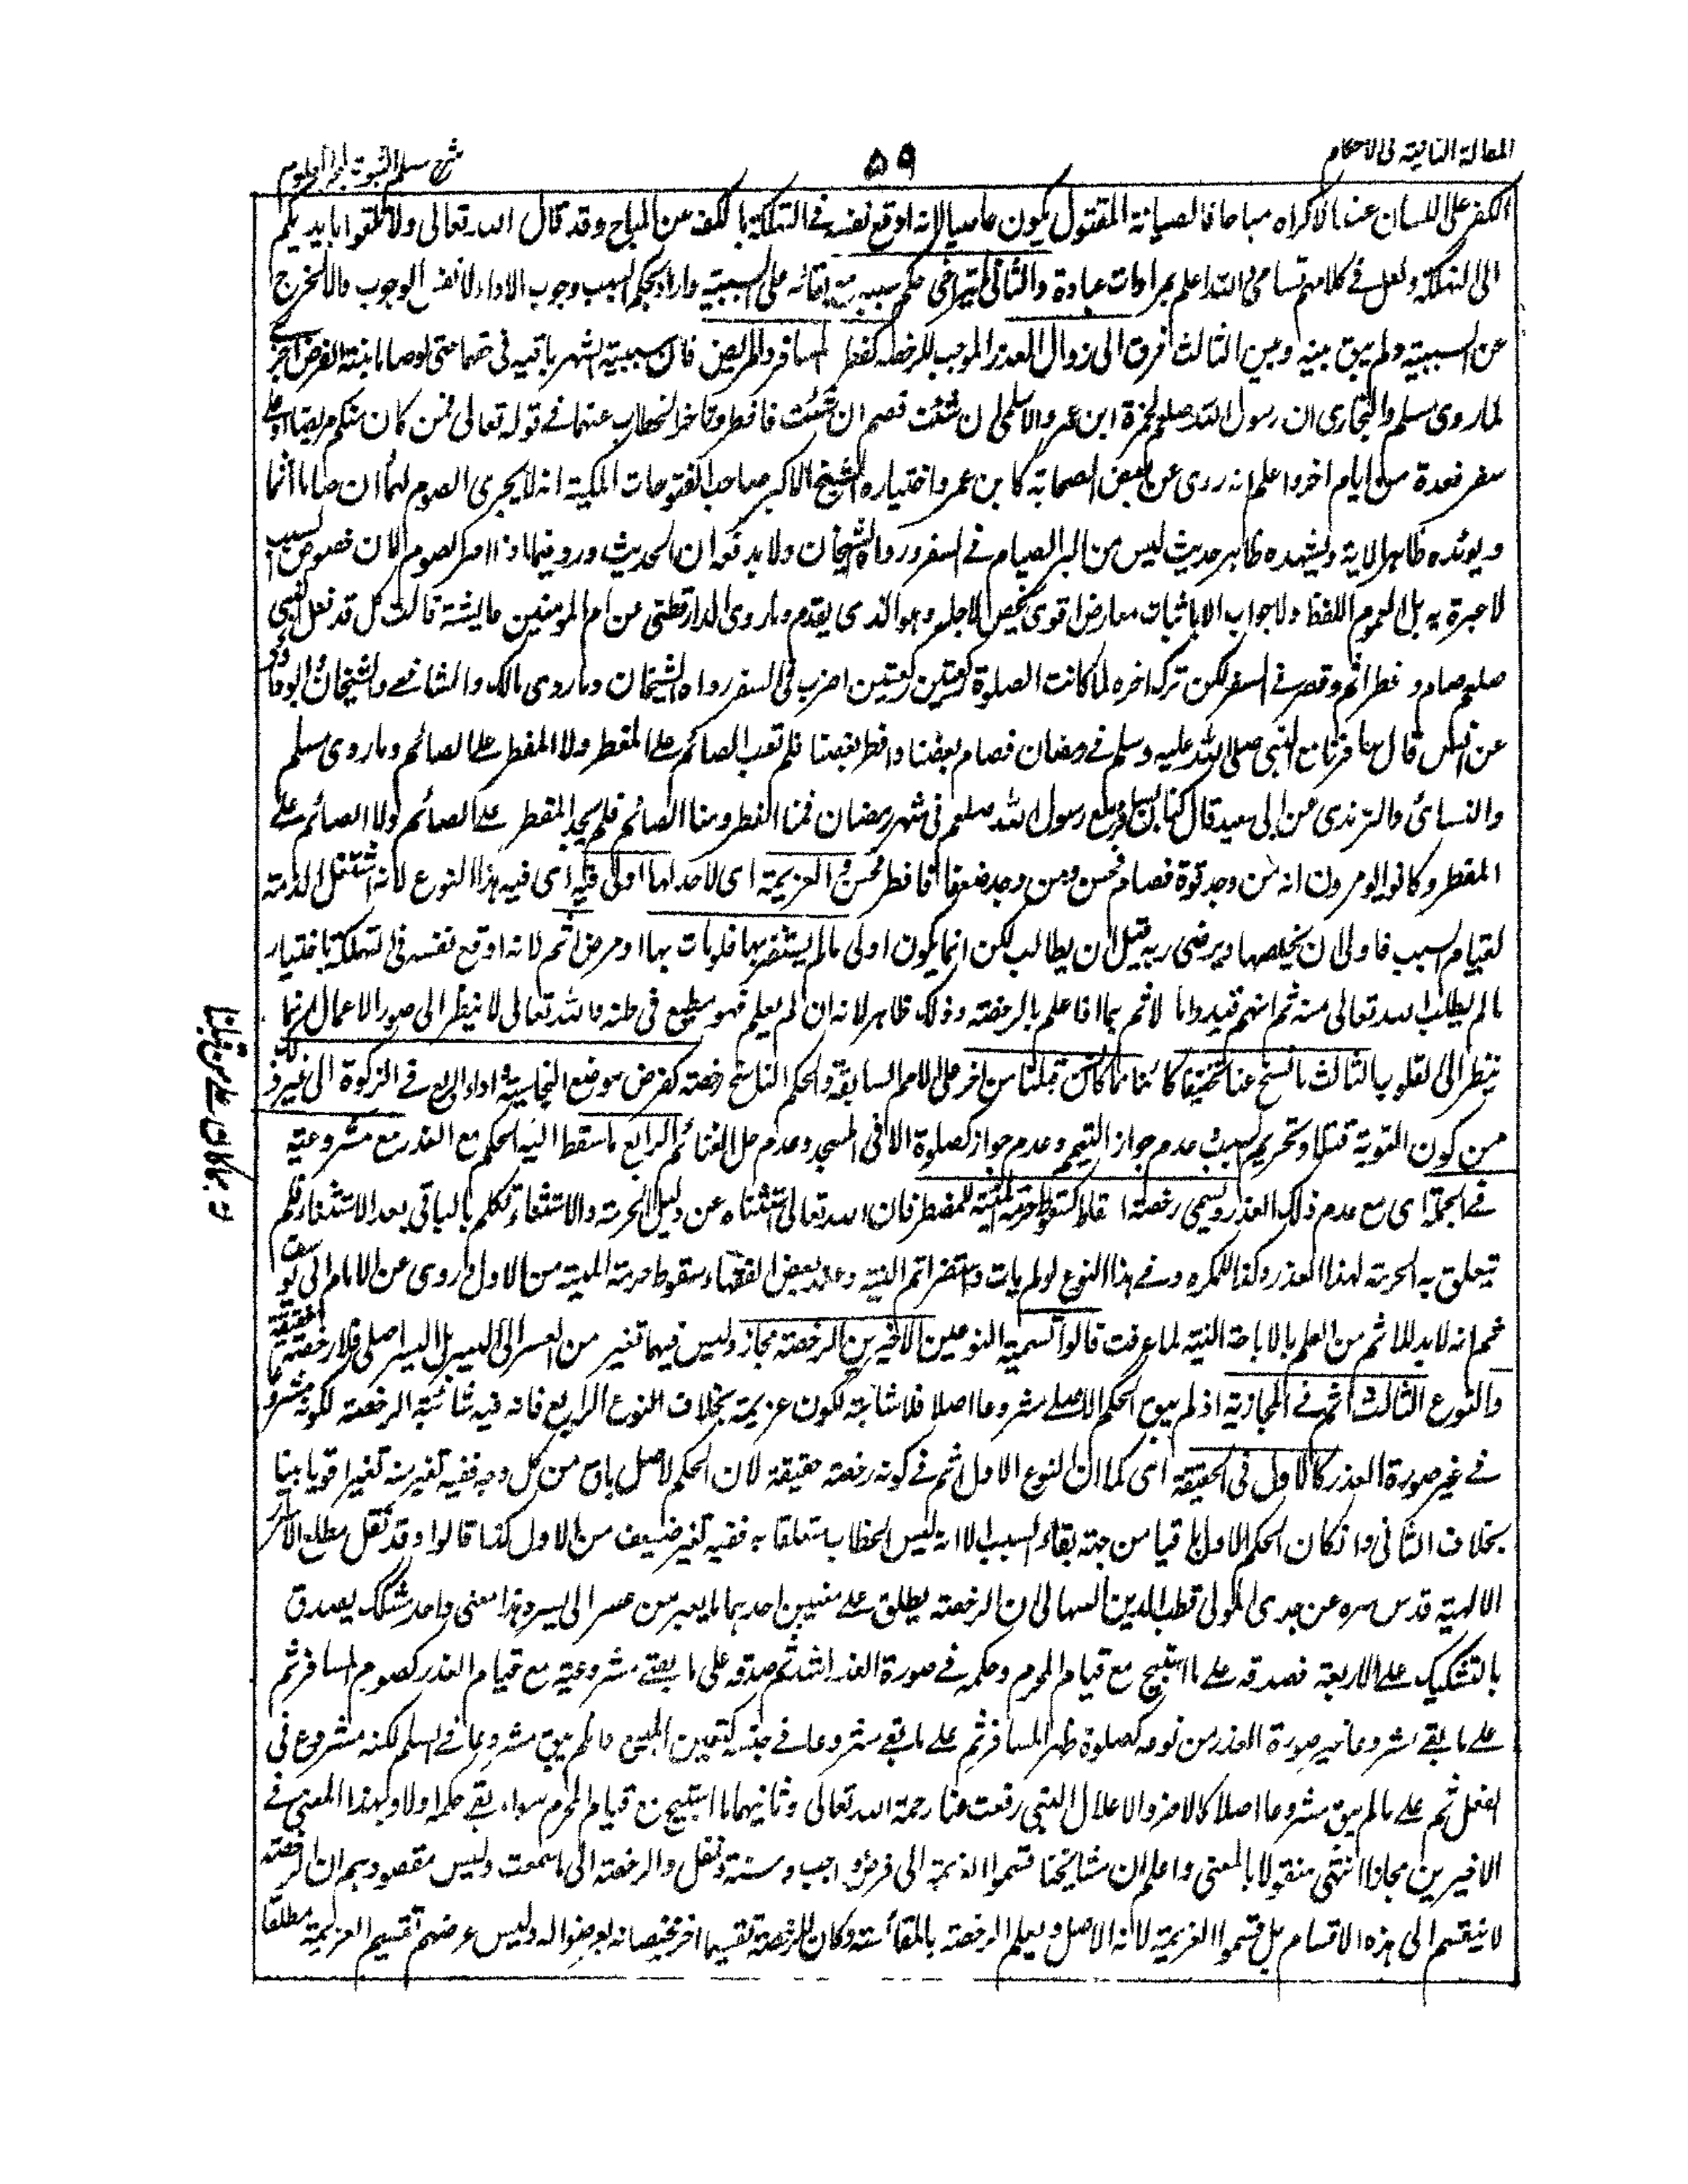 المقالة الثانية فى الاحكام
٥٩
شرح مسلم الثبوت لبحر العلوم
الكفر على اللسان عند الاكراه مباحا فالصيانة المقتول يكون عاصيا لانه اوقع نفسه فى التهلكة بالكف عن المباح وقد قال الله تعالى ولا تلقوا بايديكم
الى التهلكة ولعل فى كلامهم تسامحا الله اعلم بمرادات عباده والثانى ما يتراخى حكم سببه مع بقائه على السببية واراد بحكم السبب وجوب الاداء لا نفس الوجوب والا لخرج
عن السببية ولم يبق بينه وبين الثالث فرق الى زوال العذر الموجب للرخصة كفطر المسافر والمريض فان سببية الشهر باقية فى حقهما حتى لو صاما بنية الفرض اجزى
لما روى مسلم والبخارى ان رسول الله صلعم لحمزة ابن عمرو الاسلمى ان شئت فصم ان شئت فافطر وتاخر الخطاب عنهما فى قوله تعالى فمن كان منكم مريضا او على
سفر فعدة من ايام اخر واعلم انه روى عن بعض الصحابة كابن عمر واختياره الشيخ الاكبر صاحب الفتوحات المكية انه لا يجزى الصوم لهما ان صاما اثما
ويؤيده ظاهر الاية ويشهده ظاهر حديث ليس من البر الصيام فى السفر ورواه الشيخان ولا يدفعه ان الحديث ورد فيما اذا اضر الصوم لان خصوص السبب
لا عبرة به بل العموم اللفظ ولا جواب الا باثبات معارض اقوى يخص لاجله وهو الذى يقدم وما روى الدارقطنى عن ام المومنين عايشة قالت كل قد فعل النبى
صلعم صام وفطر اتم وقصر فى السفر لكن ترك اخره لما كانت الصلوة ركعتين ركعتين فى السفر رواه الشيخان وما روى مالك والشافعى والشيخان وابو داود
عن انس قال سافرنا مع النبى صلى الله عليه وسلم فى رمضان فصام بعضنا وافطر بعضنا فلم يعب الصائم على المفطر ولا المفطر على الصائم وما روى مسلم
والنسائى والترمذى عن ابى سعيد قال كنا نسافر مع رسول الله صلعم فى شهر رمضان فمنا المفطر ومنا الصائم فلم يجد المفطر على الصائم ولا الصائم على
المفطر وكانوا يرون انه من وجد قوة فصام فحسن ومن وجد ضعفا فافطر فحسن والعزيمة اى لاحد لها اولى فيه اى فيه هذا النوع لانه اشتغل الذمة
لقيام السبب فاولى ان يخلصها ويرضى ربه قبل ان يطالب لكن انما يكون اولى ما لم يستضر بها فلو مات بها او مرض اثم لانه اوقع نفسه فى التهلكة باختيار
ما لم يطلب الله تعالى منه ثم انهم قيدوا الاثم بما اذا علم بالرخصة وذلك ظاهر لانه ان لم يعلم فهو مطيع فى ظنه والله تعالى لا ينظر الى صور الاعمال انما
ينظر الى القلوب الثالث ما نسخ عنا تخفيفا كائنا مما كان على من قبلنا من اخر على الامم السابقة والحكم الناسخ رخصة كقرض موضع النجاسة واداء الربع فى الزكوة الى غير ذلك
من كون التوبة قتلا وتحريم السبت عدم جواز التيمم وعدم جواز الصلوة الا فى المسجد وعدم حل الغنائم الرابع ما سقط الحكم مع العذر مع مشروعيته
فى الجملة اى مع عدم ذلك العذر ويسمى رخصة اسقاط كسقوط حرمة الميتة للمضطر فان الله تعالى استثناه عن دليل الحرمة والاستثناء تكلم بالباقى بعد الاستثناء فلم
يتعلق به الحرمة لهذا العذر وكذا للمكره وفى هذا النوع لو لم يات واستضر اثم البتة وعند بعض الفقهاء سقوط حرمة الميتة من الاول وروى عن الامام ابى يوسف
ثم انه لا بد للاثم من العلم بالاباحة البتة لما عرفت قالوا تسمية النوعين الاخيرين الرخصة مجاز وليس فيهما تغير من العسر الى اليسر بل اليسر اصلى فلا رخصة حقيقة
والنوع الثالث اتم فى المجازية اذ لم يبق الحكم الاصلى مشروعا اصلا فلا شائبة لكون عزيمة بخلاف النوع الرابع فانه فيه شائبة الرخصة لكونه مشروعا
فى غير صورة العذر كالاول فى الحقيقة اى كما ان النوع الاول اتم فى كونه رخصة حقيقة لان الحكم الاصل باق من كل وجه ففيه تغير منه تغيرا قويا بينا
بخلاف الثانى وان كان الحكم الاول باقيا من جهة بقاء السبب الا انه ليس الخطاب متعلقا به ففيه تغير ضعيف من الاول كذا قالوا وقد نقل مطلع الاسرار
الالهية قدس سره عن جدى المولى قطب الدين السهالى ان الرخصة يطلق على معنيين احدهما ما يعبر من عسر الى يسر وهذا معنى واحد مشكك يصدق
بالتشكيك على الاربعة فصدقه على ما استبيح مع قيام المحرم وحكمه فى صورة العذر اشد ثم صدقه على ما يبقى مشروعيته مع قيام العذر كصوم المسافر ثم
على ما بقى مشروعا غير صورة العذر من نوعه كصلوة ظهر المسافر ثم على ما بقى مشروعا فى جنسه كتعيين المبيع ما لم يبق مشروعا فى السلم لكنه مشروع فى
ثم على ما لم يبق مشروعا اصلا كالاصر والاغلال التى رفعت عنا رحمة الله تعالى وثانيهما ما استبيح مع قيام المحرم سواء بقى حكمه اولا وبهذا المعنى فى
الاخيرين مجاز انتهى منقولا بالمعنى واعلم ان مشايخنا قسموا العزيمة الى فرض وواجب وسنة ونفل والرخصة الى ما سمعت وليس مقصودهم ان الرخصة
لا ينقسم الى هذه الاقسام بل قسموا العزيمة لانه الاصل ويعلم الرخصة بالمقائسة وكان للرخصة تقسيما اخر مختصا به تعرضوا له وليس غرضهم تقسيم العزيمة مطلقا